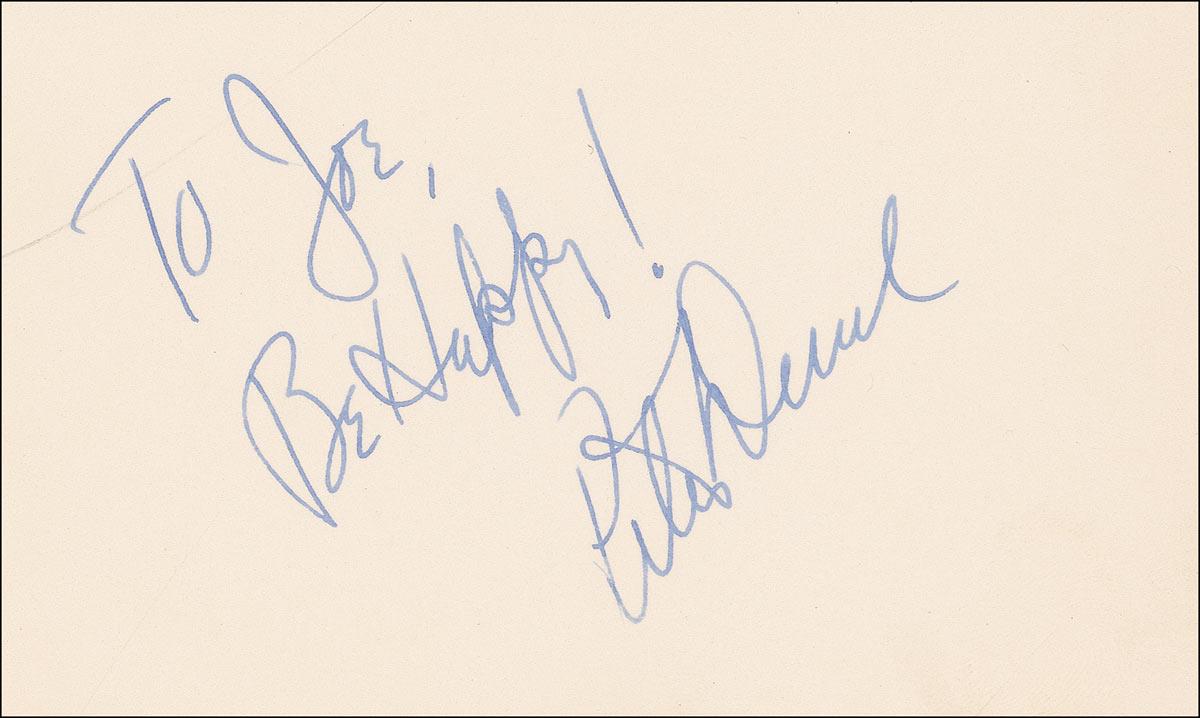 To Joe,
Be Happy!
Peter Deuel